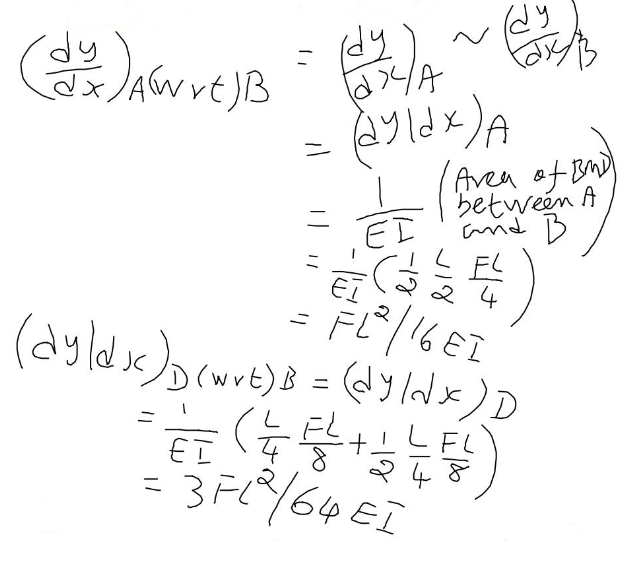 (dy/dx)A(wrt)B = (dy/dx)A ~ (dy/dx)B
= (dy/dx)A
= 1/EI (Area of BMD between A and B)
= 1/EI (1/2 L/2 FL/4)
= FL²/16EI
(dy/dx)D(wrt)B = (dy/dx)D
= 1/EI (L/4 FL/8 + 1/2 L/4 FL/8)
= 3FL²/64EI